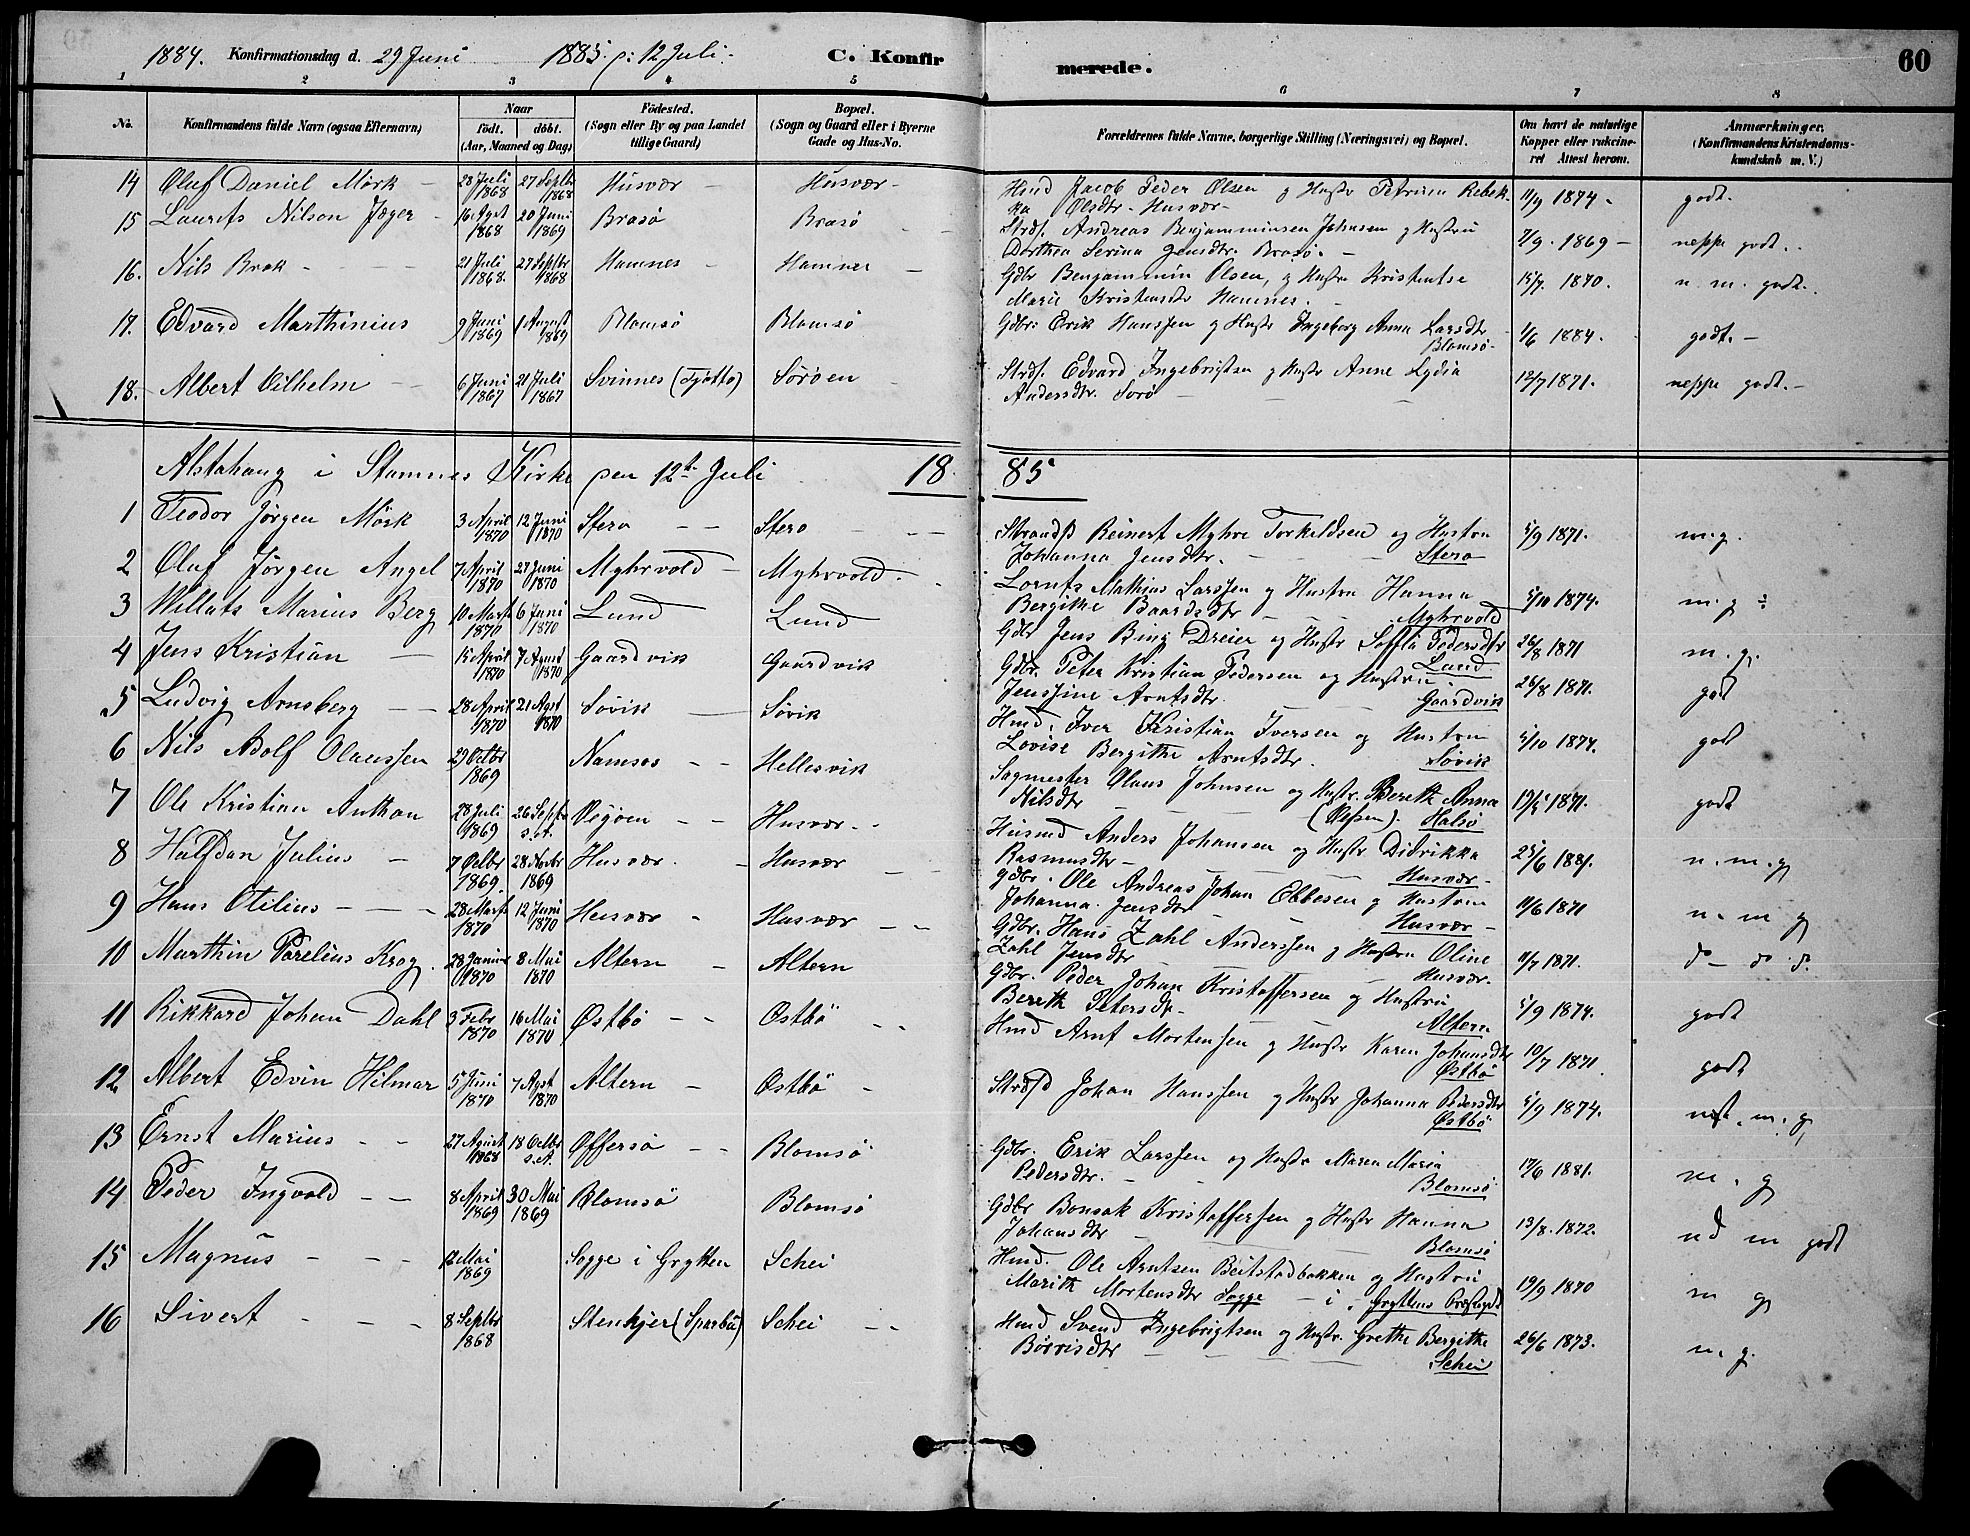 1884. Konfirmationsdag d. 29 Juni 1885 12 Juli. C. Konfir merede. 60
1 2 3 4 5 6 7 8
No. Konfirmandens fulde Navn (ogsaa Efternavn) Naar födt. döbt. (Aar, Maaned og Dag) Födested. (Sogn eller By og paa Landet tillige Gaard) Bopæl. (Sogn og Gaard eller i Byerne Gade og Hus-No. Forældrenes fulde Navne, borgerlige Stilling (Næringsvei) og Bopæl. Om havt de naturlige Kopper eller vakcineret Attest herom. Anmærkninger. (Konfirmandens Kristendomskundskab m. V.)
14 Oluf Daniel Mörk - 28 Juli 1868 27 Septbr 1868 Husvær - Husvær - Hmd Jacob Peder Olsen og Hustr Petrine Rebekka Olsdtr - Husvær - 11/9 1874 - godt.
15 Laurits Nilson Jæger - 16 Agst 1868 20 Juni 1869 Brasö Brasö Strds. Andreas Benjaminsen Johnsen og Hustru Dorthea Serina Jensdtr. Brasö. - 7/9. 1869 - neppe godt..
16. Nils Brok - 21 Juli 1868. 27 Septbr 1868 Hamnes - Hamnes - Gdbr Benjammin Olsen, og Hustr Kristentse Marie Kristensdtr Hamnes. 15/7. 1870. n. m. godt..
17. Edvard Marthinius 9 Juni 1869 1 August 1869 Blomsö Blomsö Gdbr: Erik Hanssen og Hustr Ingeborg Anna Larsdtr Blomsö. 1/6 1884. godt. -
18. Albert Vilhelm - 6 Juni 1867 21 Juli 1867 Svinnes (Tjøtto) Sörøen Strds. Edvard Ingebrigtsen og Hustr Anne Lydia Andersdtr. Sorö 12/7 1871. neppe godt. -
Alstahaug i Stamnes Kirke den 12te Juli 1885
1 Teodor Jørgen Mörk 3 April 1870 12 Juni 1870 Stero Stero Strands Reinert Myhre Torkeldsen og Hustru Johanna Jensdtr. Stero 5/9 1871. m.g.
2 Oluf Jørgen Angel 7 April 1870 27 Juni 1870 Myhrvold Myhrvold. Lornts Mathias Larssen og Hustru Hanna Bergithe Baardsdtr Myhrvold 5/10 1874. m.g ÷
3 Willats Marius Berg 10 Marts 1870 6 Juni 1870 Lund Lund Gdbr Jens Bing Dreier og Hustr Soffia Pedersdtr Lund 26/8 1871 m. g.
4 Jens Kristian - 15 April 1870 7 August 1870 Gaardvik Gaardvik Gdbr. Peter Kristian Pedersen og Hustru Jenssine Arntsdtr. Gaardvik 26/8 1871. god
5 Ludvig Arnsberg - 28 April 1870 21 Agst 1870 Søvik Søvik Hmd. Iver Kristian Iversen og Hustru Lovise Bergithe Arntsdtr. Søvik 5/10 1874. god
6 Nils Adolf Olaussen 29 Octbr 1869 Namsos Hellesvik Sagmester Olaus Johnsen og Hustr. Bereth Anna Nilsdtr Halsø 1871. godt
7 Ole Kristian Anthon 28 Juli 1869 26 Septbr s.A. Vegøen Husvær. Husmd Anders Johansen og Hustr Didrikka Rasmusdtr - Husvær - 25/6 1881. n. m. g
8 Halfdan Julius - 7 Octbr 1869. 28 Novbr 1869 Husvær. - Husvær Gdbr. Ole Andreas Johan Ebbesen og Hustru Johanna Jensdtr Husvær - 11/6 1871 n. m g
9 Hans Otilius - 28 Marts 1870 12 Juni 1870 Husvær - Husvær Gdbr. Hans Zahl Anderssen og Hustru Oline Zahl Jensdtr Husvær. 11/7 1871. do - do do.
10 Marthin Parelius Krog. 28 Januar 1870 8 Mai 1870 Altern - Altern Gdbr. Peder Johan Kristoffersen og Hustru Bereth Petersdtr. Altern 5/9 1874. godt
11 Rikkard Johan Dahl 3 Febr 1870 16 Mai 1870 Østbö Østbö Hmd Arnt Mortensen og Hustr Karen Johansdtr Østbö 10/7 1871. godt
12 Albert Edvin Hilmar 5 Juni 1870 7 Agst 1870 Altern - Østbö - Strdsd Johan Hanssen og Hustr Johanna Pedersdtr Østbö 5/9 1874. m. g
13 Ernst Marius 27 Agust 1868 18 Octbr s.A. Øffersö Blomsö Gdbr. Erik Larssen og Hustr Maren Maria Pedersdtr. Blomsö 17/6 1881. m. g
14 Peder Ingvold 8 April 1869 30 Mai 1869 Blomsö Blomsö Gdbr Bonsak Kristoffersen og Hustr Hanna Johansdtr Blomsö 13/8. 1872. m godt
15 Magnus - 12 Mai 1869 Sogge i Grytten Schei Hmd. Ole Arntsen Beitstadbakken og Hustru Marith Mortensdtr Sogge - i Gryttens Præstegd 19/9 1870 m g
16 Sivert - 8 Septbr 1868 Stenkjer (Sparbu) Schei Hmd Svend Ingebrigtsen og Hustr. Grethe Bergitte Børrisdtr Schei 26/6 1873. n. g.